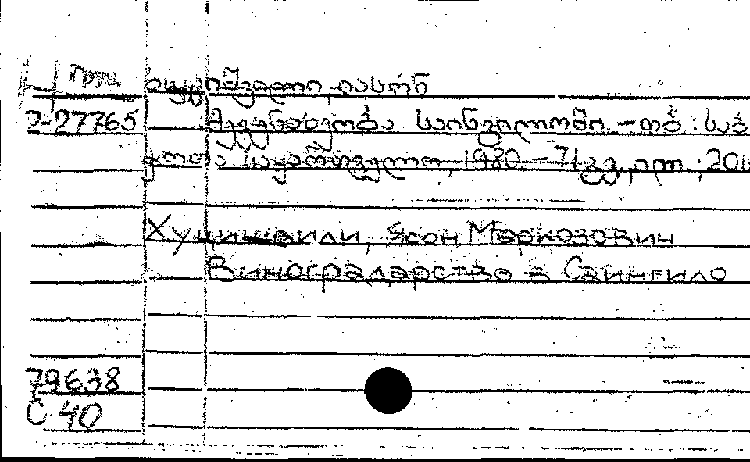 ხუციშვილი, იასონ
2-27765 მევენახეობა საინგილოში. – თბ : საბ
ჭოთა საქართველო, 1980. – 71 გვ., ილ. ; 20
Хуцишвили, Ясон Маркозович
Виноградарство в Саингило
79638
С 40